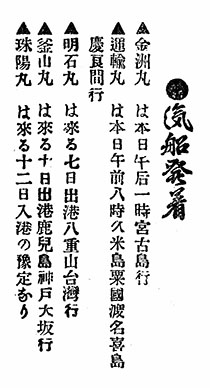 汽船発着
▲金洲丸 は本日午后一時宮古島行
▲運輸丸 は本日午前八時久米島粟國渡名喜島
慶良間行
▲明石丸 は來る七日出港八重山台灣行
▲釜山丸 は來る十日出港鹿兒島神戸大坂行
▲球陽丸 は來る十二日入港の豫定なり